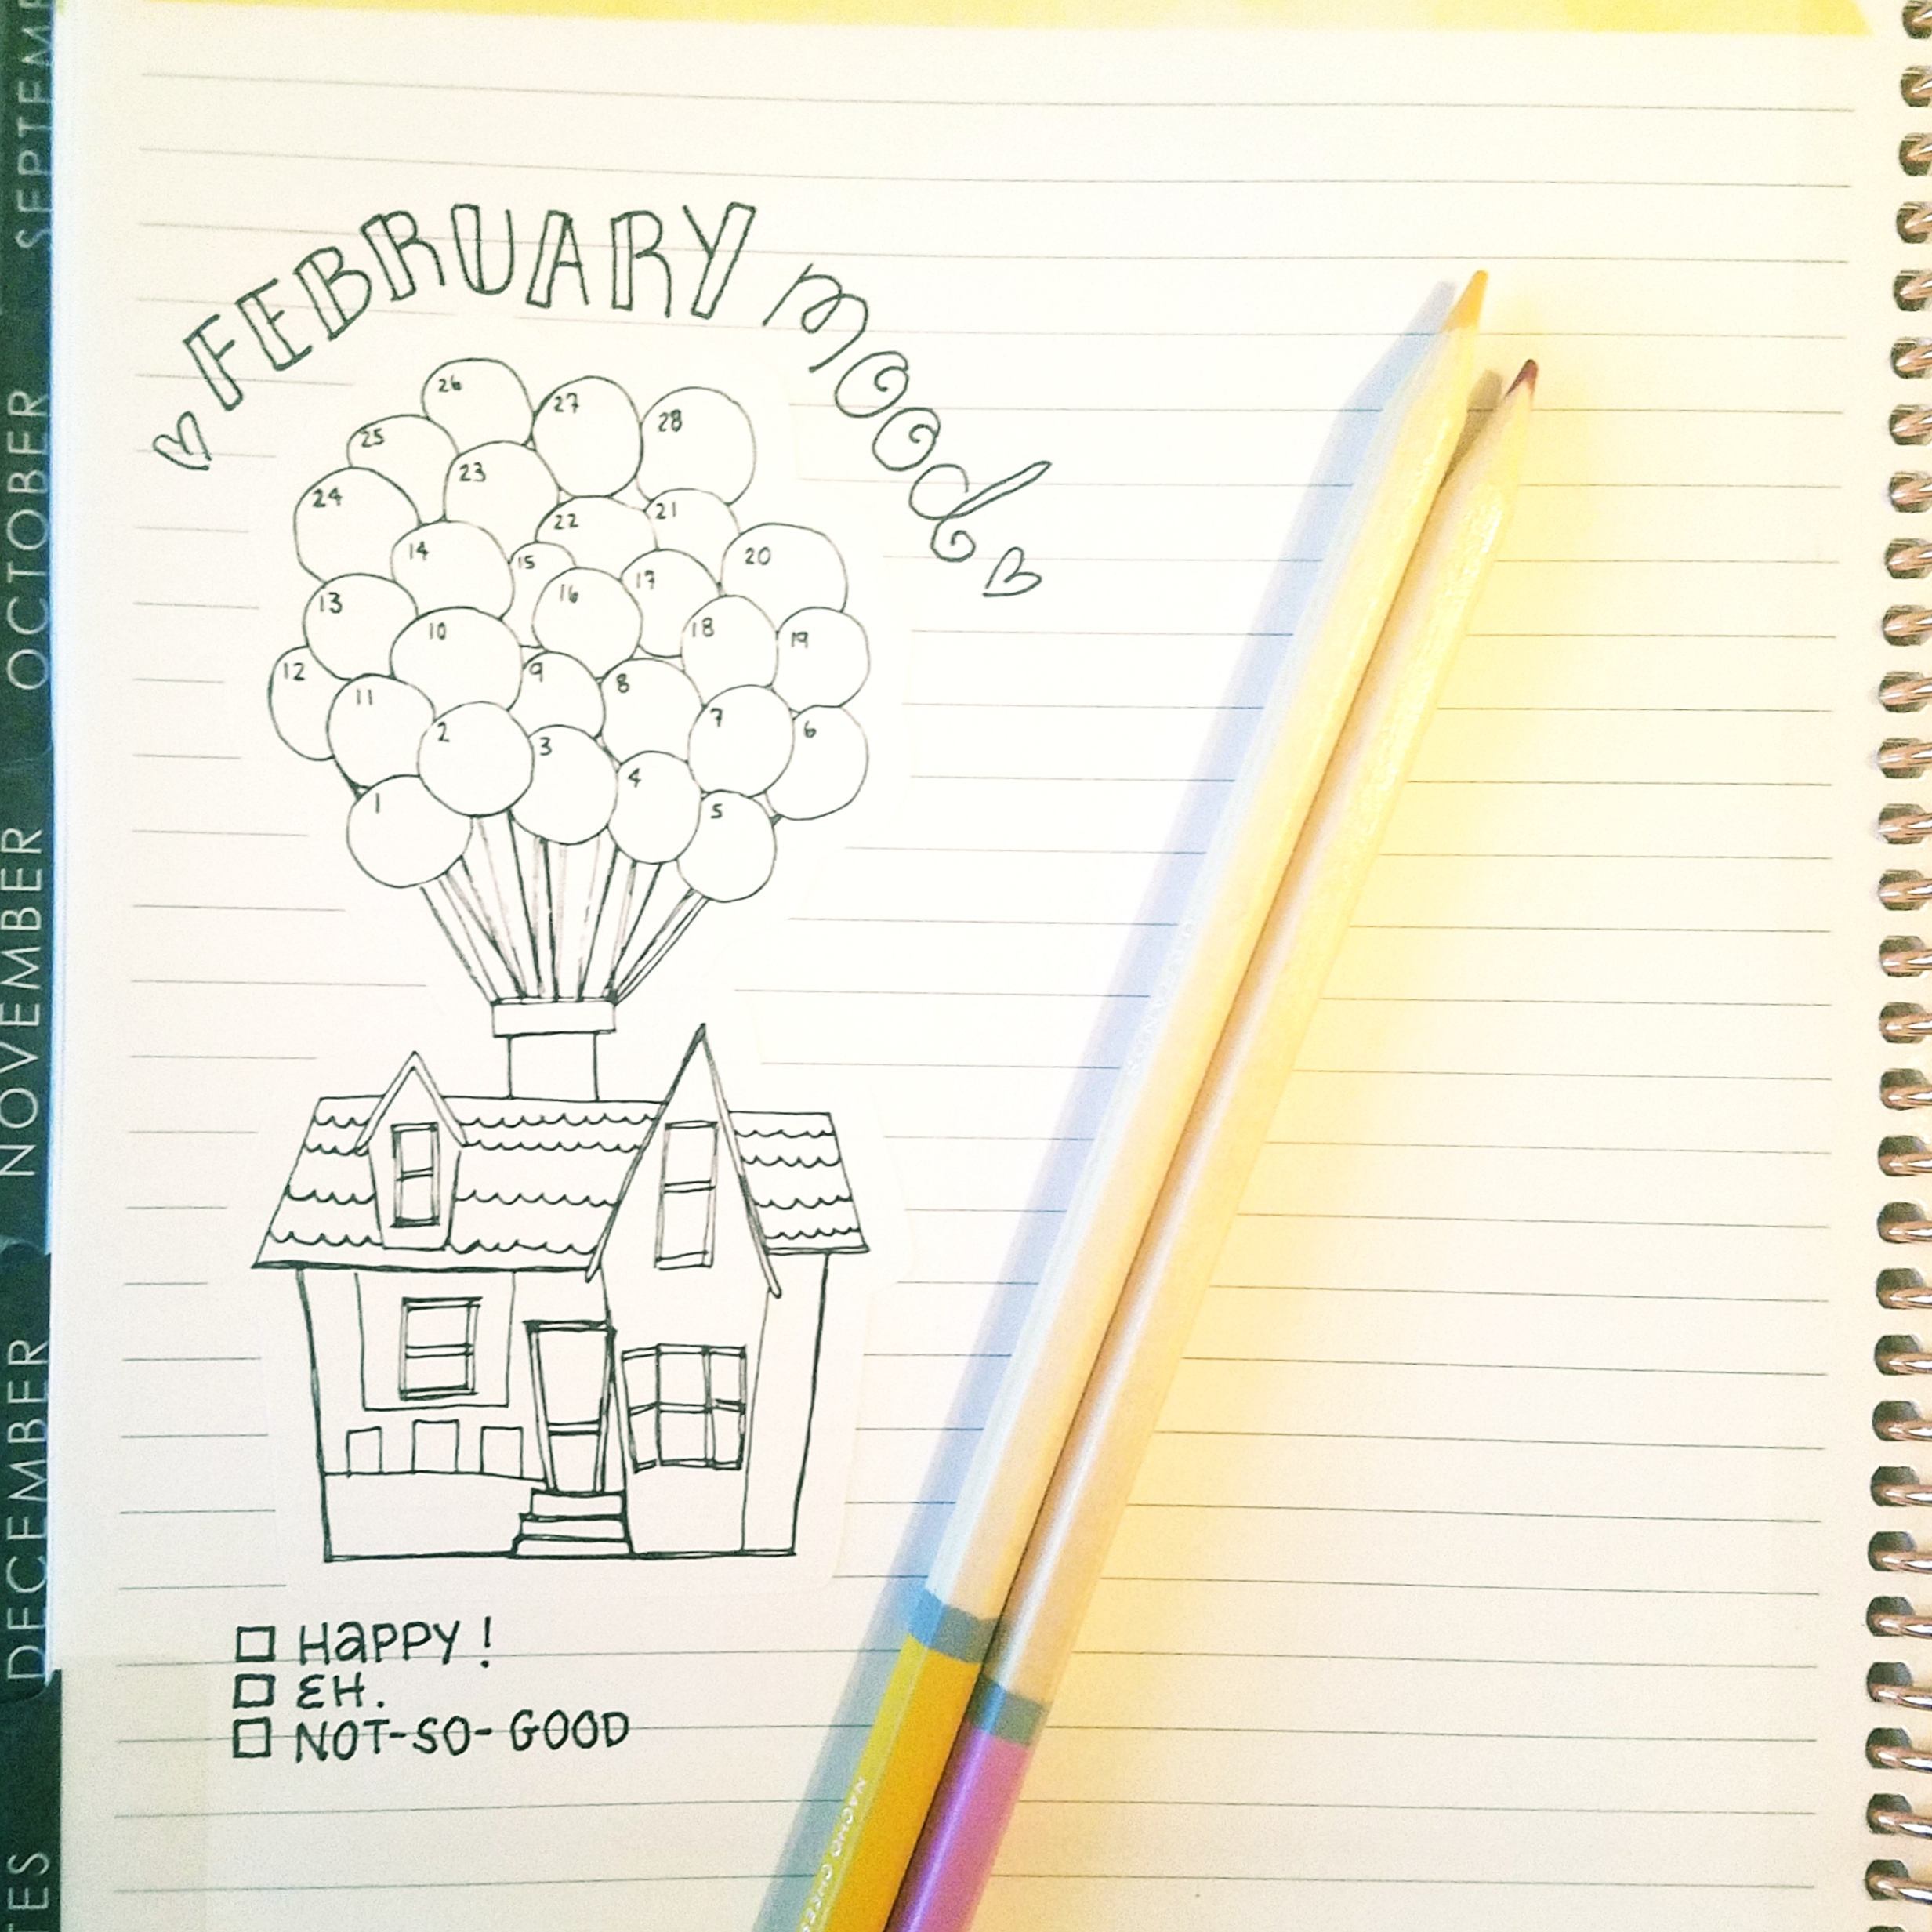 FEBRUARY mood
26
27
28
25
23
24
22
21
14
15
20
13
16
17
10
18
19
12
11
9
8
2
3
7
6
4
1
5
HAPPY!
EH.
NOT-SO-GOOD
OCTOBER
NOVEMBER
DECEMBER